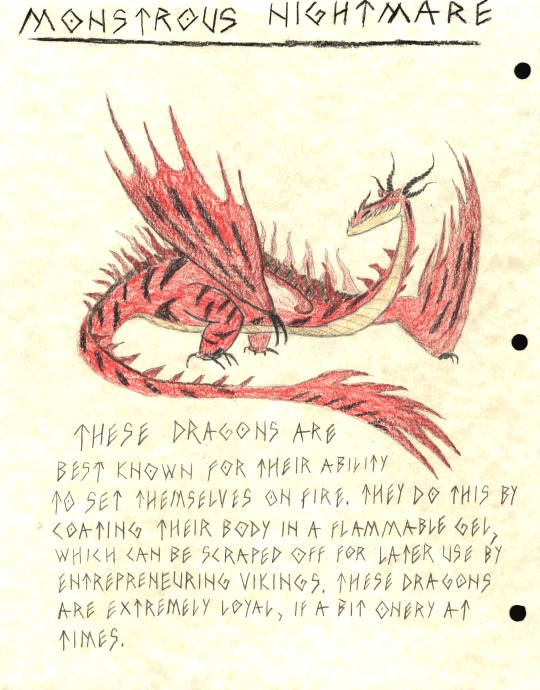 MONSTROUS NIGHTMARE
THESE DRAGONS ARE
BEST KNOWN FOR THEIR ABILITY
TO SET THEMSELVES ON FIRE. THEY DO THIS BY
COATING THEIR BODY IN A FLAMMABLE GEL,
WHICH CAN BE SCRAPED OFF FOR LATER USE BY
ENTREPRENEURING VIKINGS. THESE DRAGONS
ARE EXTREMELY LOYAL, IF A BIT ONERY AT
TIMES.